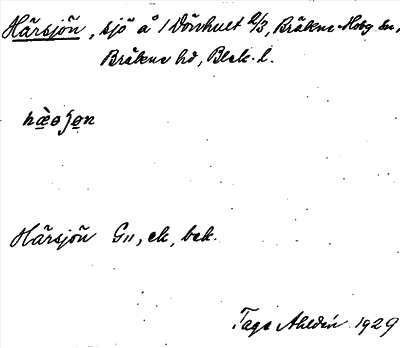 Härsjön, sjö å 1 Dönhult 2/3, Bräkne-Hoby sn,
Bräkne hd, Blek. l.
Härsjön G11, ek, bek.
Tage Ahldén 1929